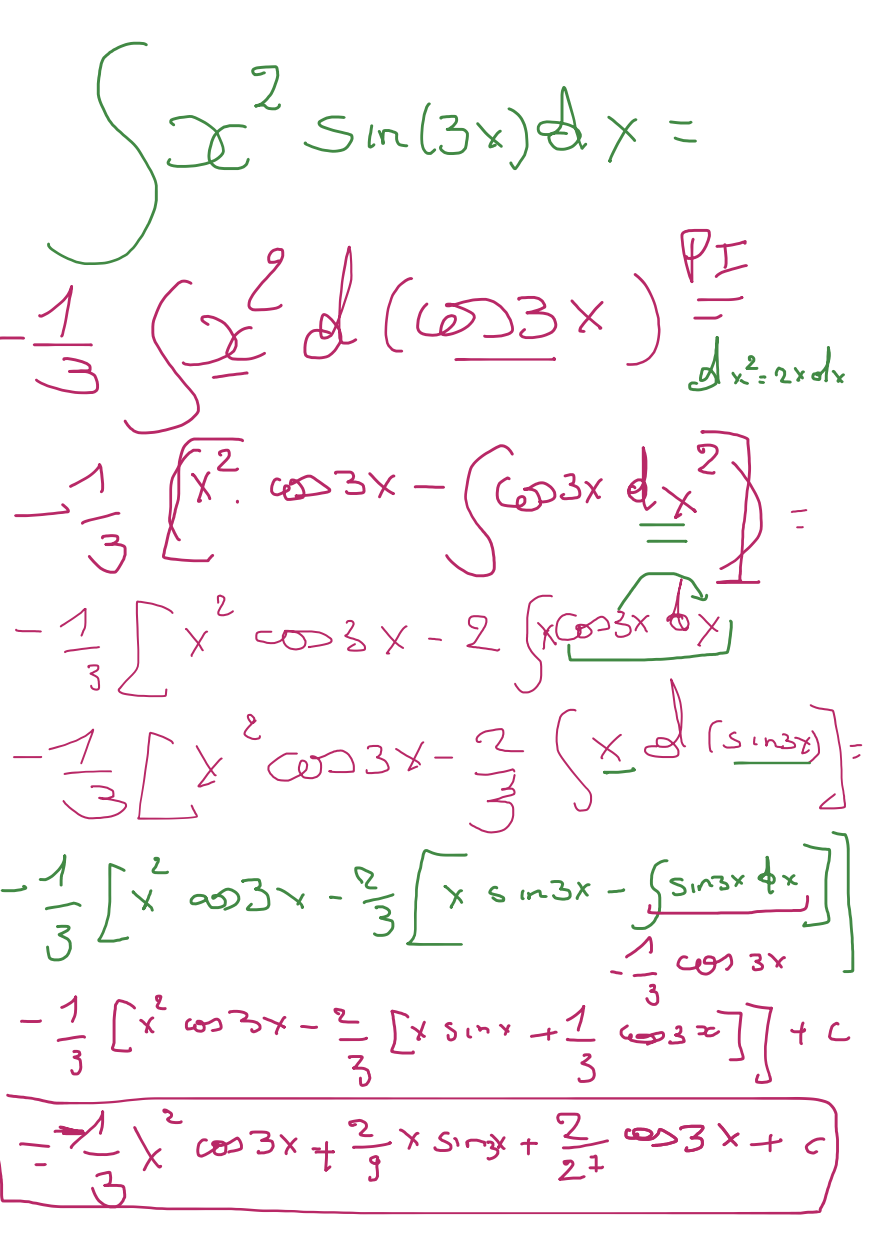 ∫ x² sin(3x) dx =
-1/3 ∫ x² d(cos3x) PI =
dx² = 2x dx
-1/3 [x². cos3x - ∫ cos3x dx²] =
-1/3 [x² cos3x - 2 ∫ x cos3x dx
-1/3 [x² cos3x - 2/3 ∫ x d(sin3x)] =
-1/3 [x² cos3x - 2/3 [x sin3x - ∫ sin3x dx]]
-1/3 cos 3x
-1/3 [x² cos3x - 2/3 [x sinx + 1/3 cos3x]] + c
= -1/3 x² cos3x + 2/9 x sin3x + 2/27 cos3x + c